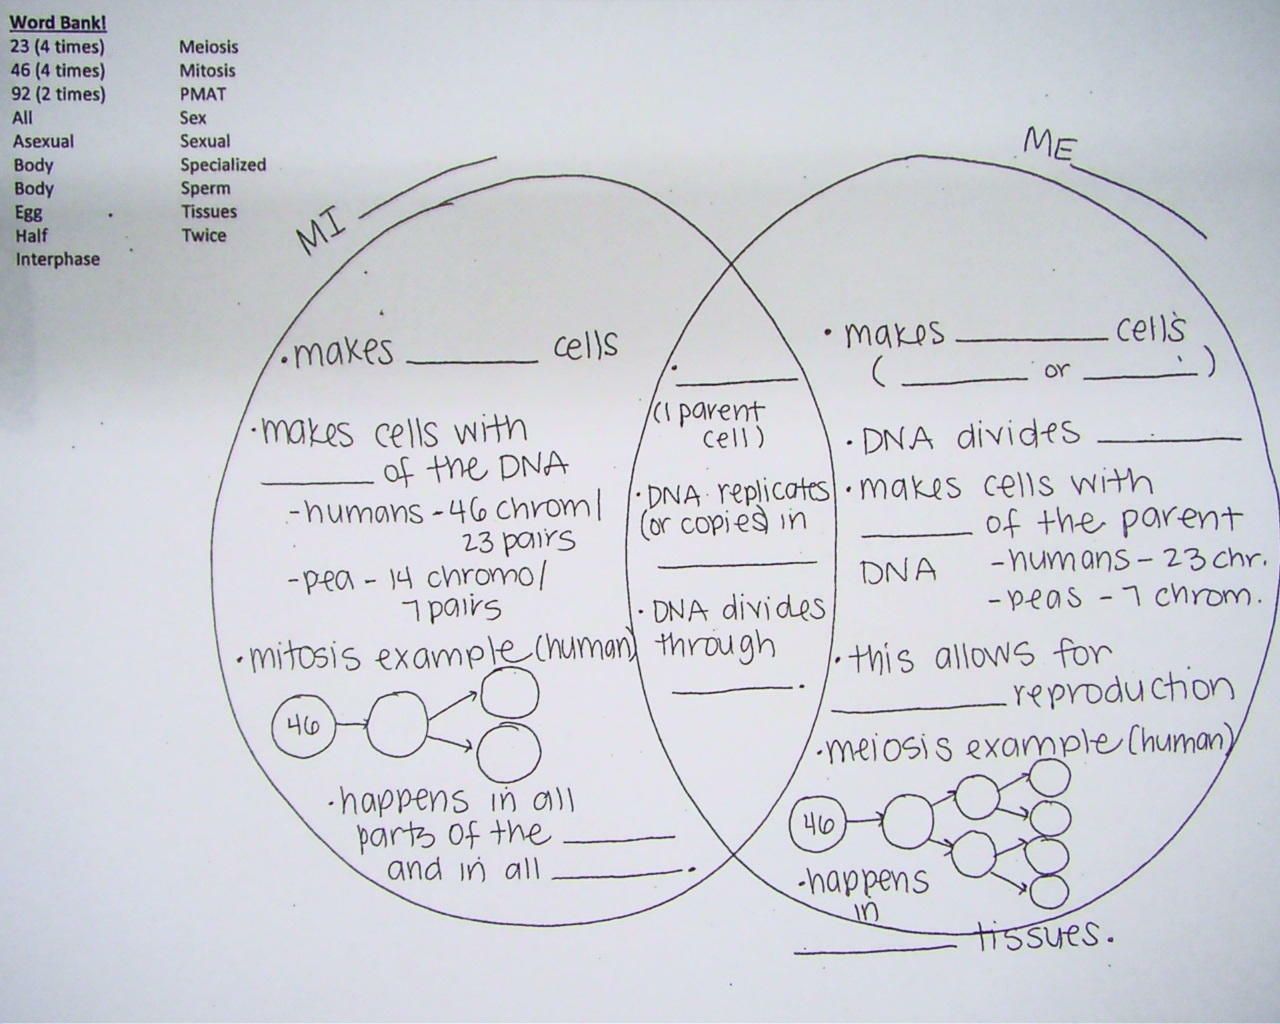 Word Bank!
23 (4 times)
46 (4 times)
92 (2 times)
All
Asexual
Body
Body
Egg
Half
Interphase
Meiosis
Mitosis
PMAT
Sex
Sexual
Specialized
Sperm
Tissues
Twice
MI
ME
• makes ________ cells
• makes cells with
________ of the DNA
- humans - 46 chrom/
23 pairs
- pea - 14 chromo/
7 pairs
• mitosis example (human)
46
• happens in all
parts of the ________
and in all ________.
• ________
(1 parent
cell)
• DNA replicates
(or copies) in
________
• DNA divides
through
________.
• makes ________ cells
( ________ or ________ )
• DNA divides ________
• makes cells with
________ of the parent
DNA - humans - 23 chr.
- peas - 7 chrom.
• this allows for
________ reproduction
• meiosis example (human)
46
• happens
in
________ tissues.